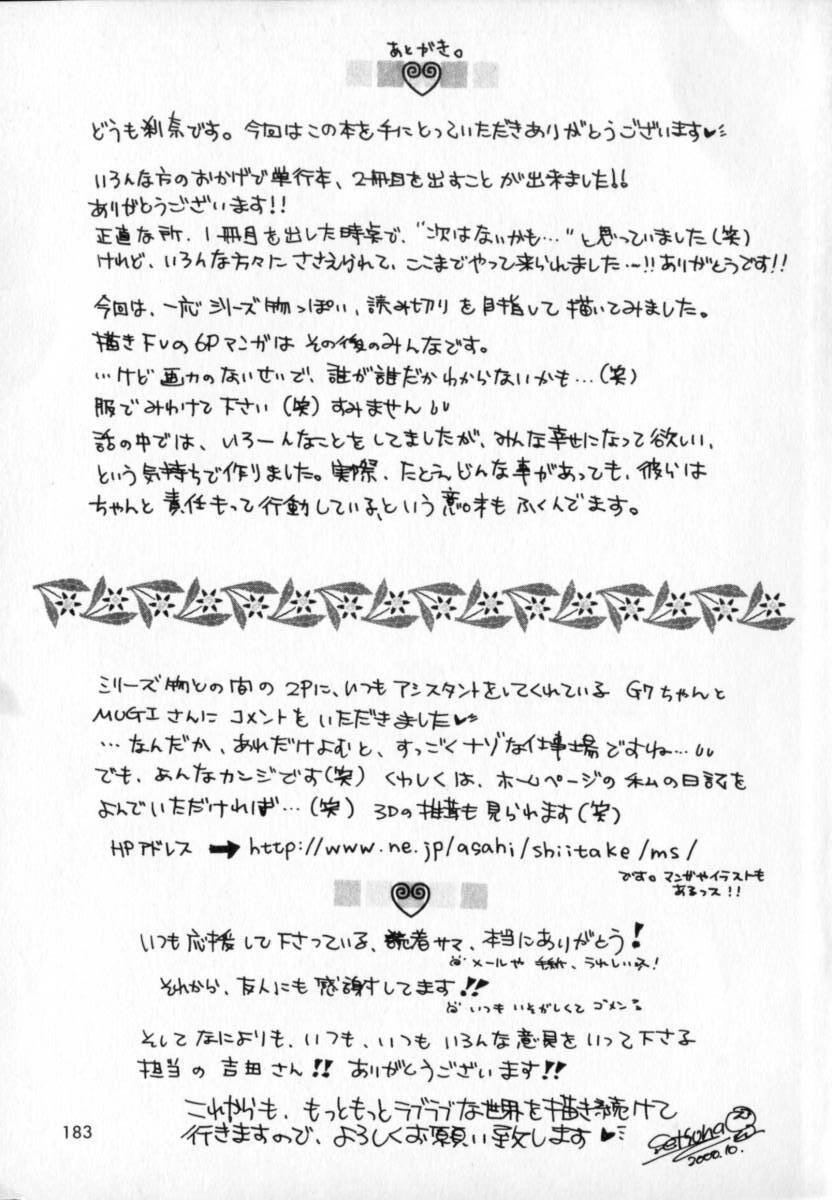 あとがき。
どうも刹奈です。今回はこの本を手にとっていただきありがとうございます
いろんな方のおかげで単行本、2冊目を出すことが出来ました!!
ありがとうございます!!
正直な所、1冊目を出した時点で、"次はないかも…"と思っていました(笑)
けれど、いろんな方々にささえられて、ここまでやって来られました…!!ありがとうです!!
今回は、一応シリーズ物っぽい、読み切りを目指して描いてみました。
描き下しの6Pマンガはその後のみんなです。
…けど画力のないせいで、誰が誰だかわからないかも…(笑)
服でみわけて下さい(笑)すみません
話の中では、いろーんなことをしてましたが、みんな幸せになって欲しい、
という気持ちで作りました。実際、たとえどんな事があっても、彼らは
ちゃんと責任もって行動している、という意味もふくんでます。
シリーズ物との間の2Pに、いつもアシスタントをしてくれているG7ちゃんと
MUGIさんにコメントをいただきました
…なんだか、あれだけよむと、すっごくナゾな仕事場ですね…
でも、あんなカンジです(笑)くわしくは、ホームページの私の日記を
よんでいただければ…(笑)3Dの椎茸も見られます(笑)
HPアドレス → http://www.ne.jp/asahi/shiitake/ms/
です。マンガやイラストも
あるっス!!
いつも応援して下さっている、読者サマ、本当にありがとう!
メールや手紙、うれしいっス!
それから、友人にも感謝してます!!
いつもいそがしくてゴメン
そしてなによりも、いつも、いつもいろんな意見をいって下さる
担当の吉田さん!!ありがとうございます!!
これからも、もっともっとラブラブな世界を描き続けて
行きますので、よろしくお願い致します
183
Setsuna
2000.10.